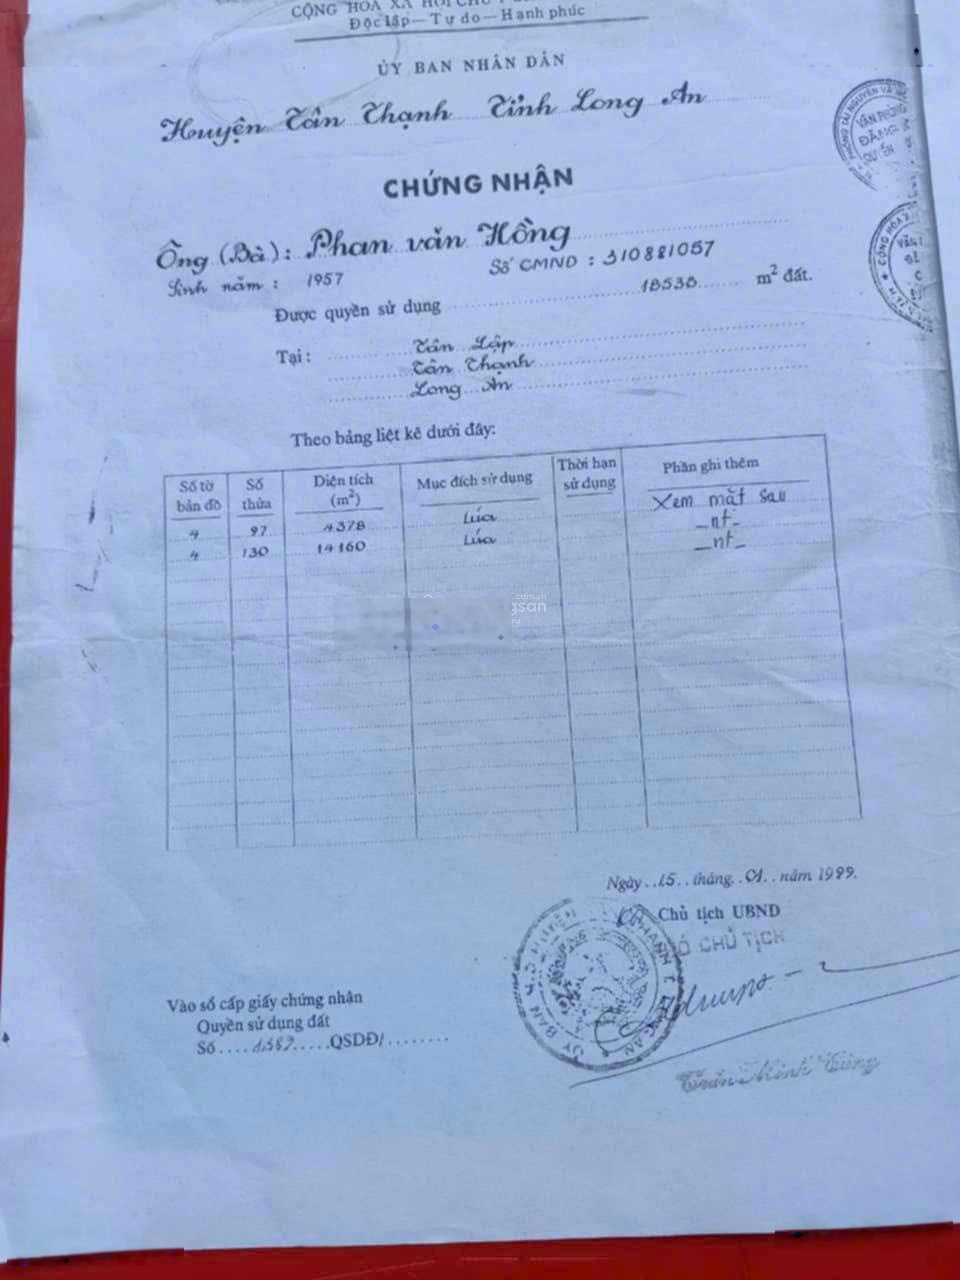 CỘNG HÒA XÃ HỘI CHỦ
Độc lập—Tự do—Hạnh phúc
ỦY BAN NHÂN DÂN
Huyện Tân Thạnh Tỉnh Long An
CHỨNG NHẬN
Ông (Bà): Phan văn Hồng
Sinh năm : 1957 Số CMND : 310881057
Được quyền sử dụng 18538 m² đất.
Tại: Tân Lập
Tân Thạnh
Long An
Theo bảng liệt kê dưới đây:
Số tờ bản đồ Số thửa Diện tích (m²) Mục đích sử dụng Thời hạn sử dụng Phần ghi thêm
Xem mặt sau
4 97 4378 Lúa _nt_
4 130 14160 Lúa _nt_
Ngày 15 tháng 01 năm 1999.
Chủ tịch UBND
CHỦ TỊCH
Vào sổ cấp giấy chứng nhận
Quyền sử dụng đất
Số QSDĐ/
Trần Minh